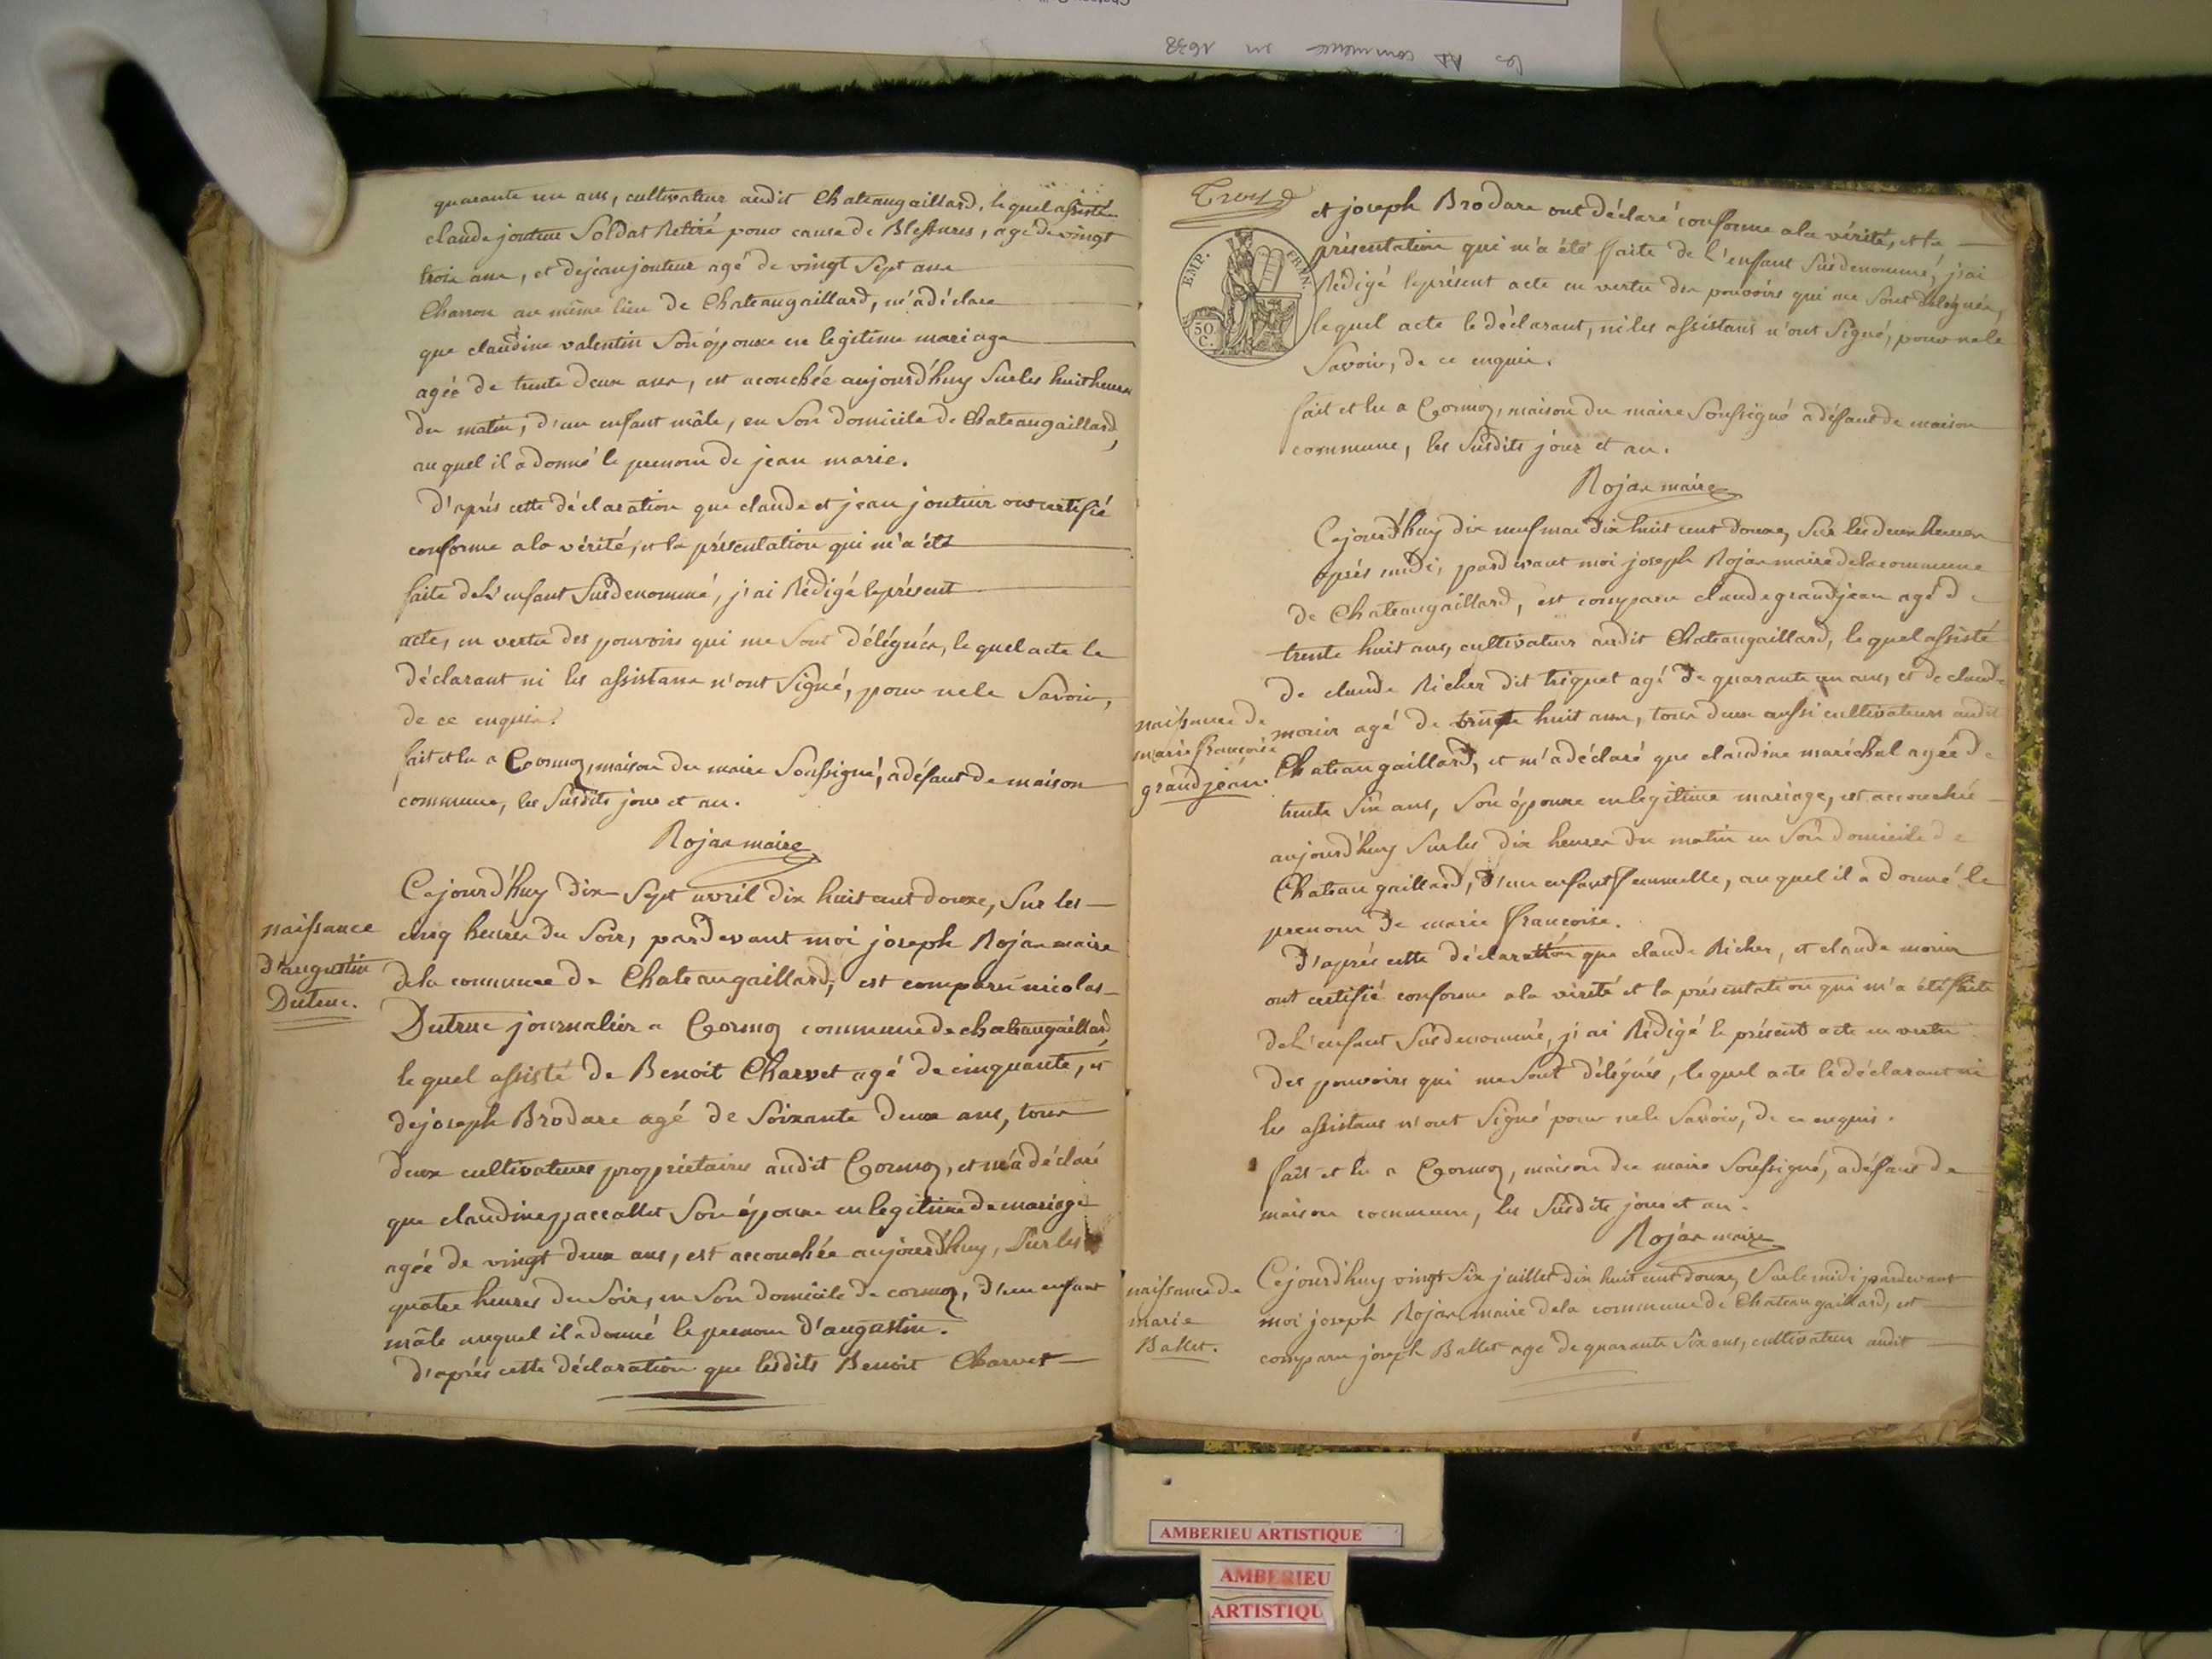 les AD commence en 1638
quarante un ans, cultivateur audit Chateaugaillard, lequel assisté de
claude jouteur Soldat Retiré pour cause de Blessures, agé de vingt
trois ans, et de jean jouteur agé de vingt Sept ans
Charron au même lieu de Chateaugaillard, m'a déclaré
que claudine valentin Son épouse en legitime mariage
agée de trente deux ans, est acouchée aujourd'huy Sur les huit heures
du matin, d'un enfant mâle, en Son domicile de Chateaugaillard,
auquel il a donné le prenom de jean marie.
D'aprés cette déclaration que claude et jean jouteur ont certifié
conforme a la vérité, et la présentation qui m'a été
faite de l'enfant Susdenommé, j'ai Rédigé le présent
acte, en vertu des pouvoirs qui me Sont délégués, le quel acte le
déclarant ni les assistans n'ont Signé, pour ne le Savoir,
de ce enquis.
fait et lu a Cormoz, maison du maire Soussigné, a défaut de maison
commune, les Susdits jour et an.
Rojas maire
naissance
d'augustin
Dutruc.
Cejourd'huy dix Sept avril dix huit cent douze, Sur les
cinq heures du Soir, pardevant moi joseph Rojas maire
de la commune de Chateaugaillard, est comparu nicolas
Dutruc journalier a Cormoz commune de chateaugaillard
le quel assisté de Benoit Charvet agé de cinquante, et
de joseph Brodare agé de Soixante deux ans, tous
deux cultivateurs propriétaires audit Cormoz, et m'a déclaré
que claudine paccallet Son épouse en legitime de mariage
agée de vingt deux ans, est accouchée aujourd'huy, Sur les
quatre heures du Soir, en Son domicile de cormoz, d'un enfant
mâle auquel il a donné le prenom d'augustin.
d'aprés cette déclaration que lesdits Benoit Charvet
Trois
EMP. FRAN.
50 C.
et joseph Brodare ont déclaré conforme a la vérité, et la
présentation qui m'a été faite de l'enfant Susdenommé, j'ai
Rédigé le présent acte en vertu des pouvoirs qui me Sont délégués,
le quel acte le déclarant, ni les assistans n'ont Signé, pour ne le
Savoir, de ce enquis.
fait et lu a Cormoz, maison du maire Soussigné a défaut de maison
commune, les Susdits jour et an.
Rojas maire
naissance de
marie françoise
grandjean.
Cejourd'huy dix neuf mai dix huit cent douze, Sur les deux heures
aprés midi, pardevant moi joseph Rojas maire de la commune
de Chateaugaillard, est comparu claude grandjean agé de
trente huit ans, cultivateur audit Chateaugaillard, le quel assisté
de claude Richer dit triquet agé de quarante un ans, et de claude
morin agé de huit ans, tous deux aussi cultivateurs audit
Chateaugaillard, et m'a déclaré que claudine maréchal agée de
trente Six ans, Son épouse en legitime mariage, est accouchée
aujourd'huy Sur les dix heures du matin en Son domicile de
Chateaugaillard, d'un enfant femmelle, auquel il a donné le
prenom de marie françoise.
D'aprés cette déclaration que claude Richer, et claude morin
ont certifié conforme a la vérité et la présentation qui m'a été faite
de l'enfant Susdenommé, j'ai Rédigé le présent acte en vertu
des pouvoirs qui me Sont délégués, le quel acte le déclarant ni
les assistans n'ont Signé pour ne le Savoir, de ce enquis.
fait et lu a Cormoz, maison du maire Soussigné, a défaut de
maison commune, les Susdits jour et an.
Rojas maire
naissance de
marie
Ballet.
Cejourd'huy vingt Six juillet dix huit cent douze, Sur le midi pardevant
moi joseph Rojas maire de la commune de Chateaugaillard, est
comparu joseph Ballet agé de quarante Six ans, cultivateur audit
AMBERIEU ARTISTIQUE
AMBERIEU
ARTISTIQU